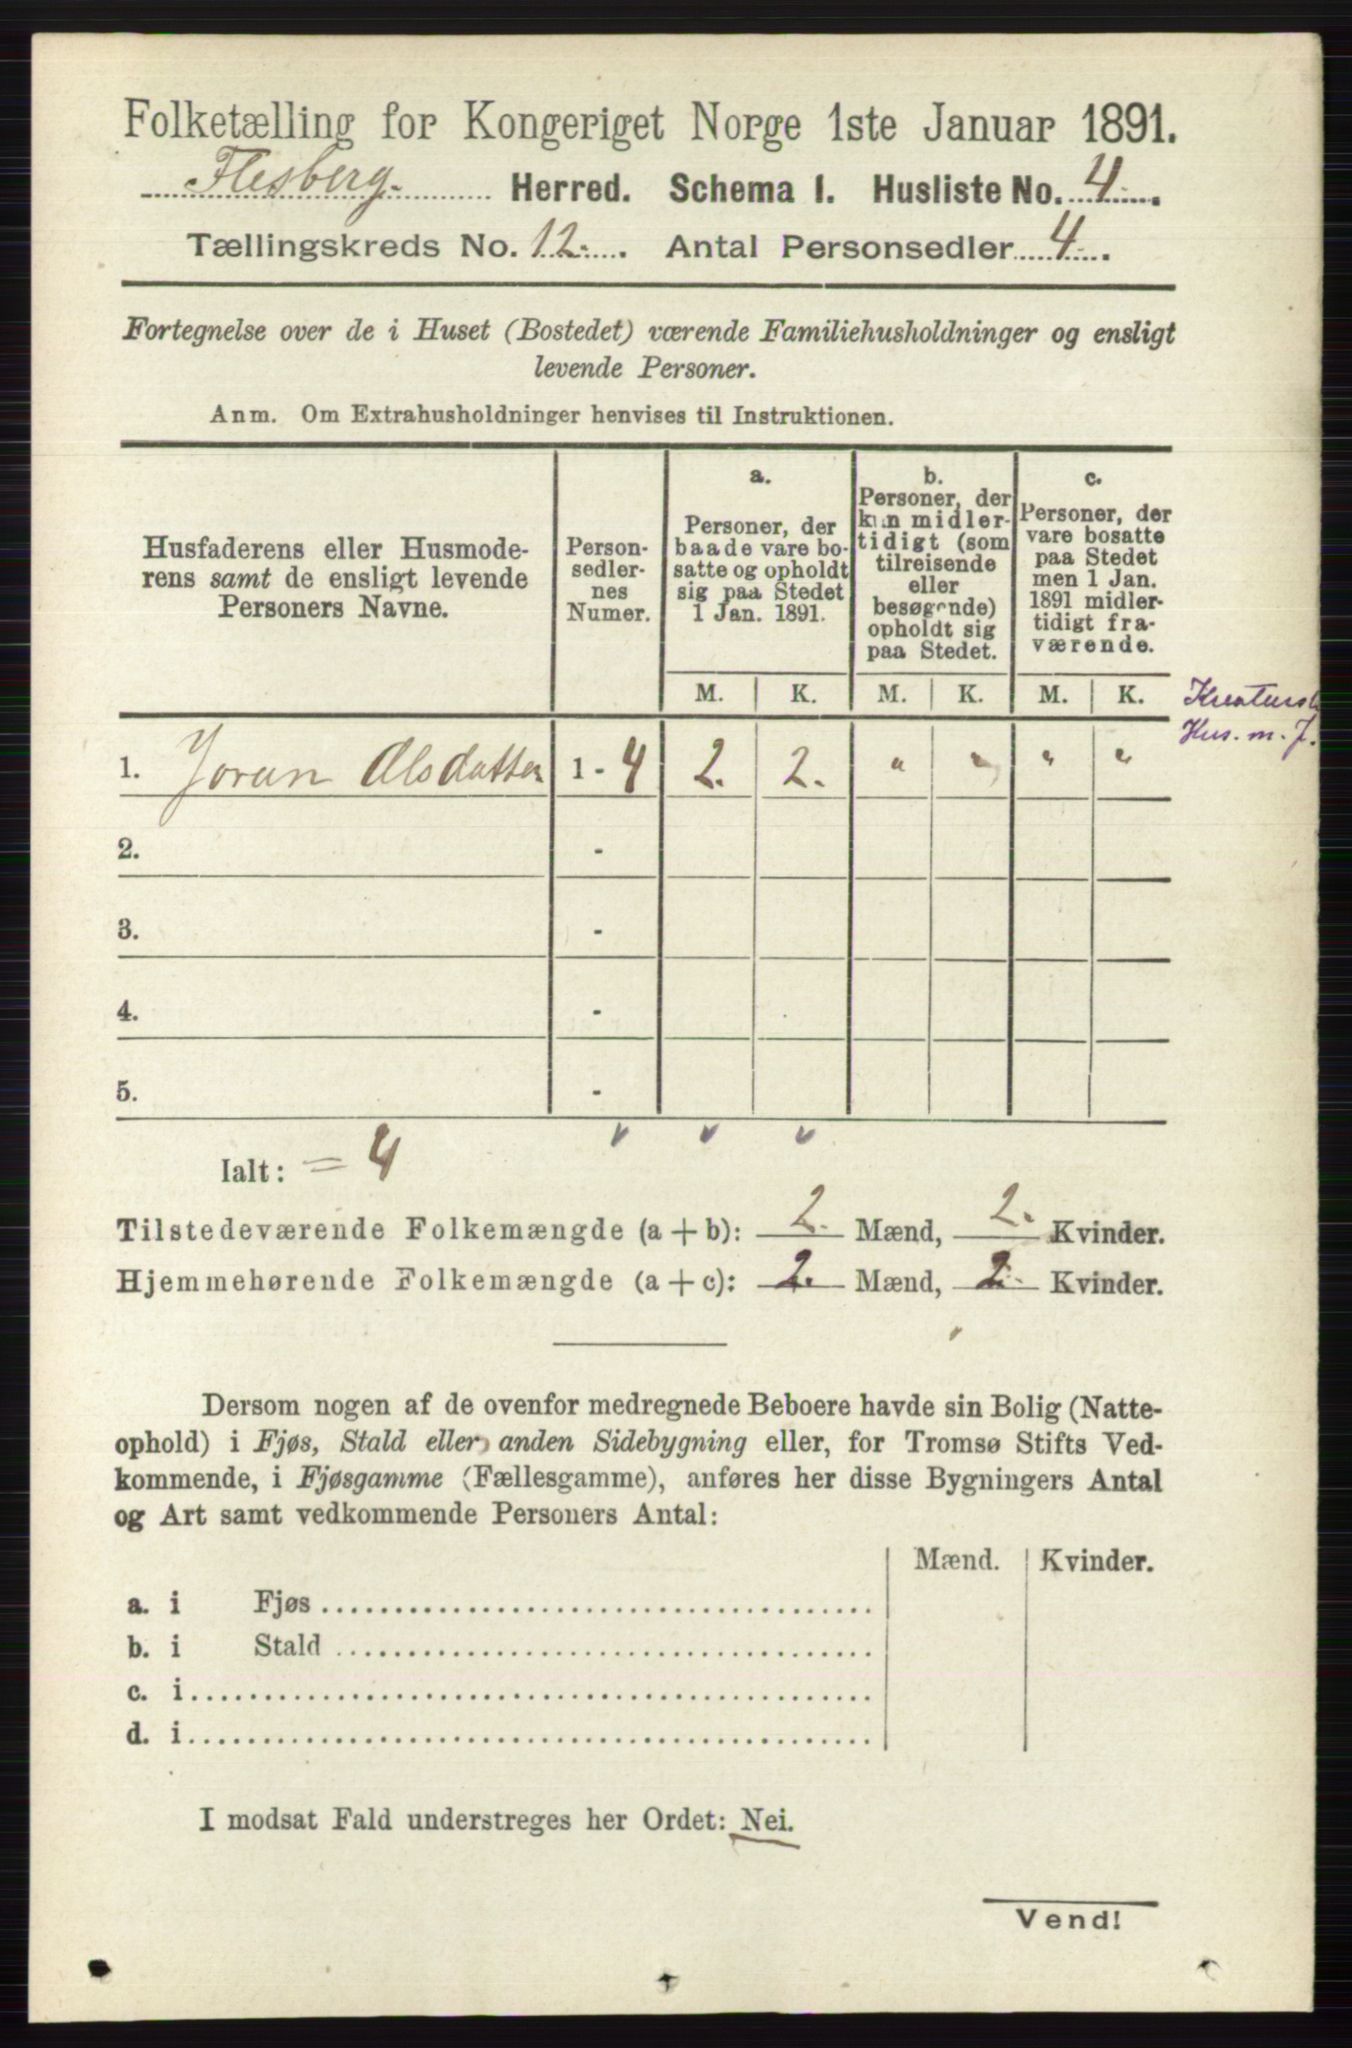 Folketælling for Kongeriget Norge 1ste Januar 1891.
Flesberg. Herred. Schema 1. Husliste No. 4.
Tællingskreds No. 12. Antal Personsedler 4.
Fortegnelse over de i Huset (Bostedet) værende Familiehusholdninger og ensligt
levende Personer.
Anm. Om Extrahusholdninger henvises til Instruktionen.
Husfaderens eller Husmode-
rens samt de ensligt levende
Personers Navne.
Person-
sedler-
nes
Numer.
a.
Personer, der
baade vare bo-
satte og opholdt
sig paa Stedet
1 Jan. 1891.
b.
Personer, der
kun midler-
tidigt (som
tilreisende
eller
besøgende)
opholdt sig
paa Stedet.
c.
Personer, der
vare bosatte
paa Stedet
men 1 Jan.
1891 midler-
tidigt fra-
værende.
M. K. M. K. M. K.
Hus. m. J.
1. Joran Olsdatter 1 - 4 2. 2. " " " "
2. -
3. -
4. -
5. -
Ialt: = 4
Tilstedeværende Folkemængde (a + b): 2. Mænd, 2. Kvinder.
Hjemmehørende Folkemængde (a + c): 2. Mænd, 2. Kvinder.
Dersom nogen af de ovenfor medregnede Beboere havde sin Bolig (Natte-
ophold) i Fjøs, Stald eller anden Sidebygning eller, for Tromsø Stifts Ved-
kommende, i Fjøsgamme (Fællesgamme), anføres her disse Bygningers Antal
og Art samt vedkommende Personers Antal:
Mænd. Kvinder.
a. i Fjøs
b. i Stald
c. i
d. i
I modsat Fald understreges her Ordet: Nei.
Vend!